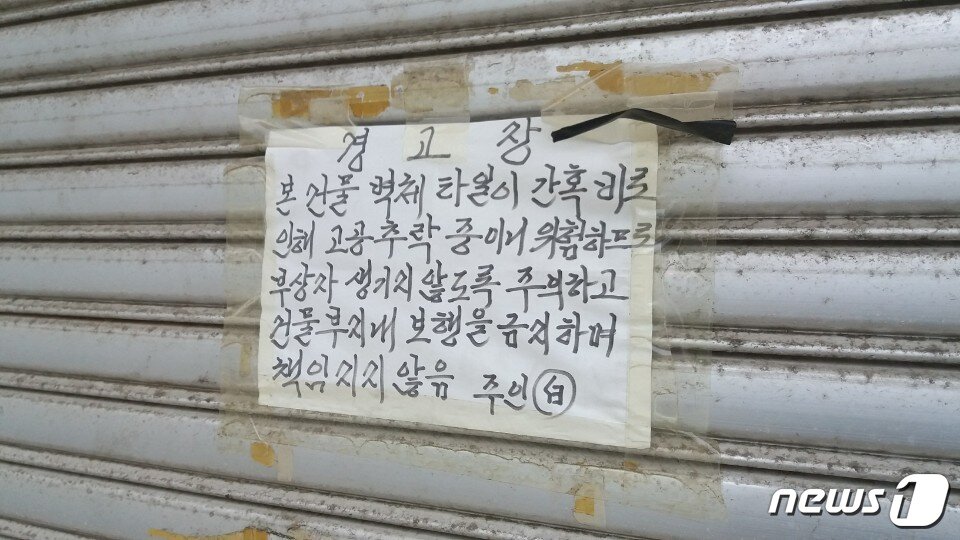 경 고 장
본 건물 벽체 타일이 간혹 비로
인해 고공추락 중이니 위험하므로
부상자 생기지 않도록 주의하고
건물부지내 보행을 금지하며
책임지지 않음 주인 白
news1